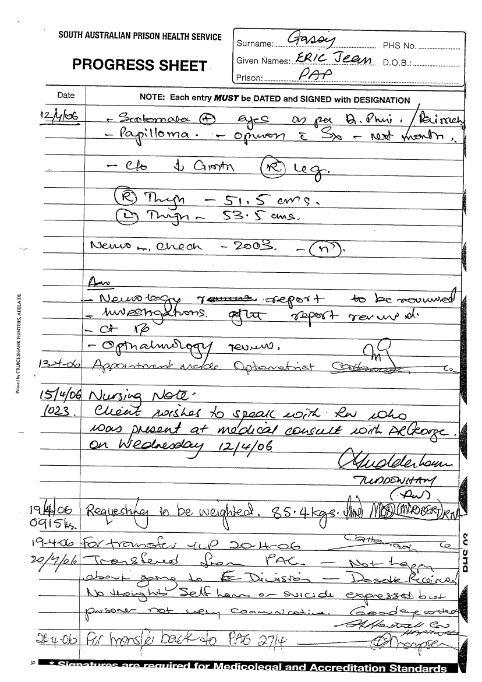 SOUTH AUSTRALIAN PRISON HEALTH SERVICE
PROGRESS SHEET
Surname: Gassy PHS No.
Given Names: ERIC Jean D.O.B.:
Prison: PAP
Date NOTE: Each entry MUST be DATED and SIGNED with DESIGNATION
12/4/06 - Scotomata + eyes as per
- Papilloma. - opinion - next month.
- c/o ↓ Growth (R) Leg.
(R) Thigh - 51.5 cms.
(L) Thigh - 53.5 cms.
Neuro check - 2003. - (n).
- Neurology report to be reviewed
- Investigations. after report
- Ct
- Opthalmology review.
13-4-06 Appointment made Optometrist
15/4/06 Nursing Note.
1023. Client wishes to speak with RN who
was present at medical consult with DR George.
on Wednesday 12/4/06
TUDDENHAM
(RN)
19/4/06 Requesting to be weighted. 85.4kgs. RN
0915hs.
19-4-06 For transfer YLP 20-4-06
20/4/06 Transferred from PAC. - Not happy
about going to E Division - Received
No thoughts Self harm or suicide expressed but
prisoner not very communicative. Good eye contact
26-4-06 For transfer back to PAC 27/4
* Signatures are required for Medicolegal and Accreditation Standards